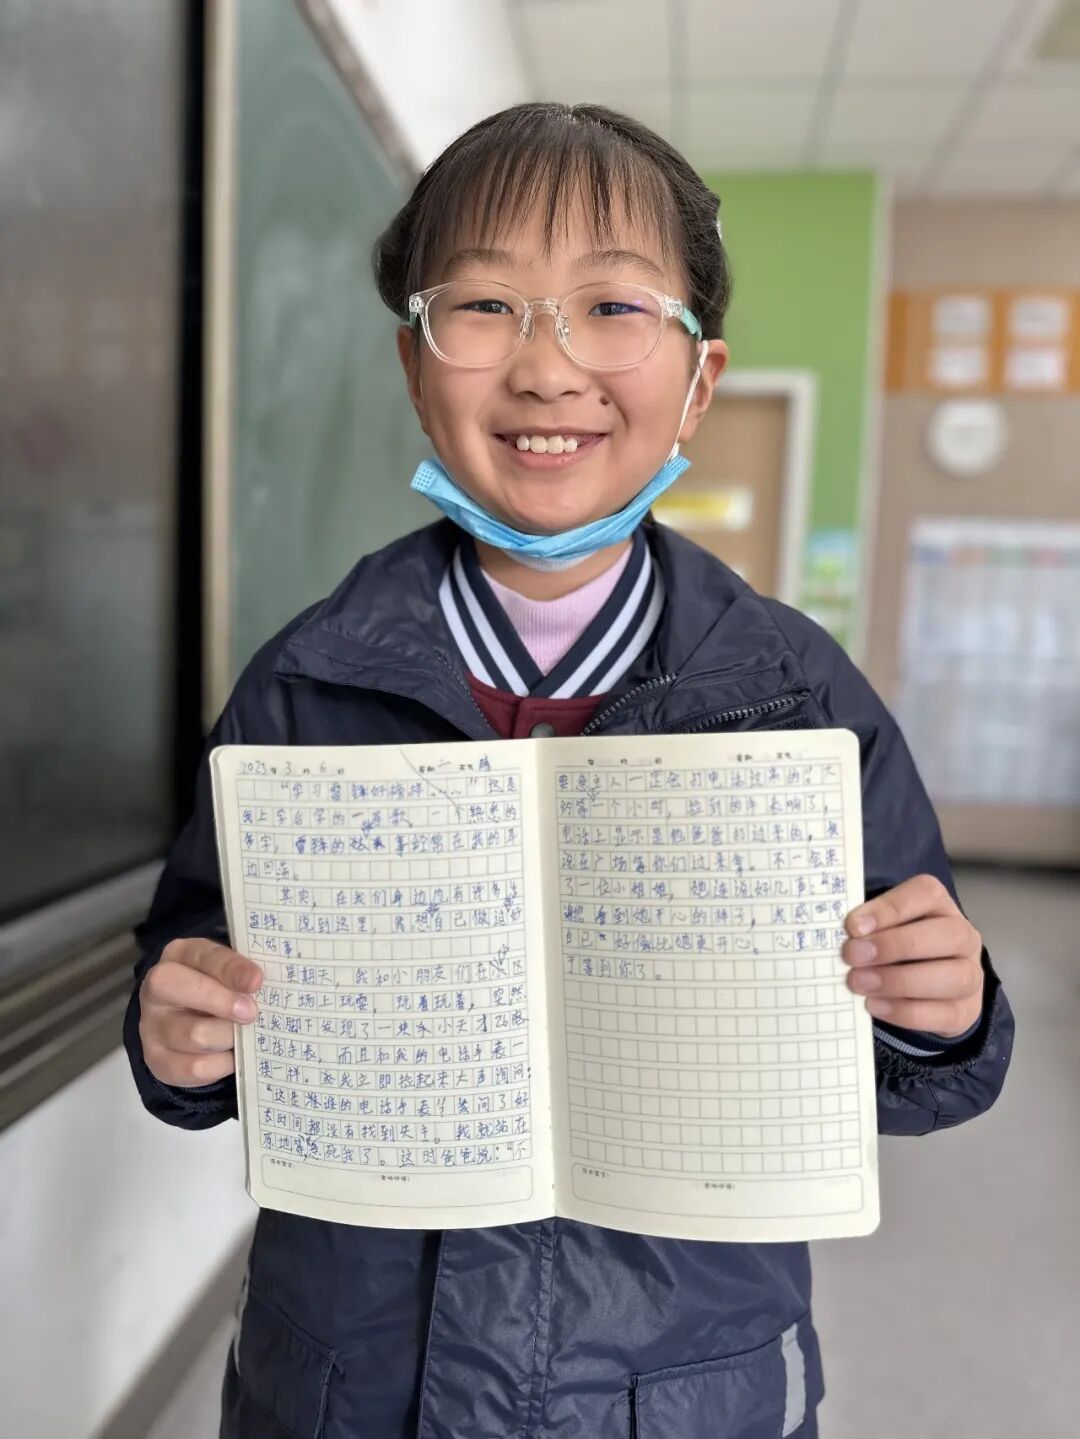 2023年3月6日 星期一 天气 晴
“学习雷锋好榜样……”这是
我上学后学的一首歌。一个熟悉的
名字，雷锋的故事经常在我的耳
边回荡。
其实，在我们身边也有许多
雷锋。说到这里，我想自己做过好
人好事。
星期天，我和小朋友们在小区
内的广场上玩耍，玩着玩着，突然
在我脚下发现了一块小天才Z6
电话手表，而且和我的电话手表一
模一样。我立即捡起来大声询问：
“这是谁谁的电话手表”？我问了好
长时间都没有找到失主。我就站在
原地等，急死我了。这时爸爸说：“不
要急主人一定会打电话过来的”大
约等一个小时，捡到的手表响了，
电话上显示是他爸爸打过来的，我
说在广场等你们过来拿。不一会来
了一位小姐姐，她连说好几声：“谢
谢”看到她开心的样子，我感觉
自己好像比她更开心。心里想终
于等到你了。
老师评语：
年 月 日 星期 天气
老师评语：